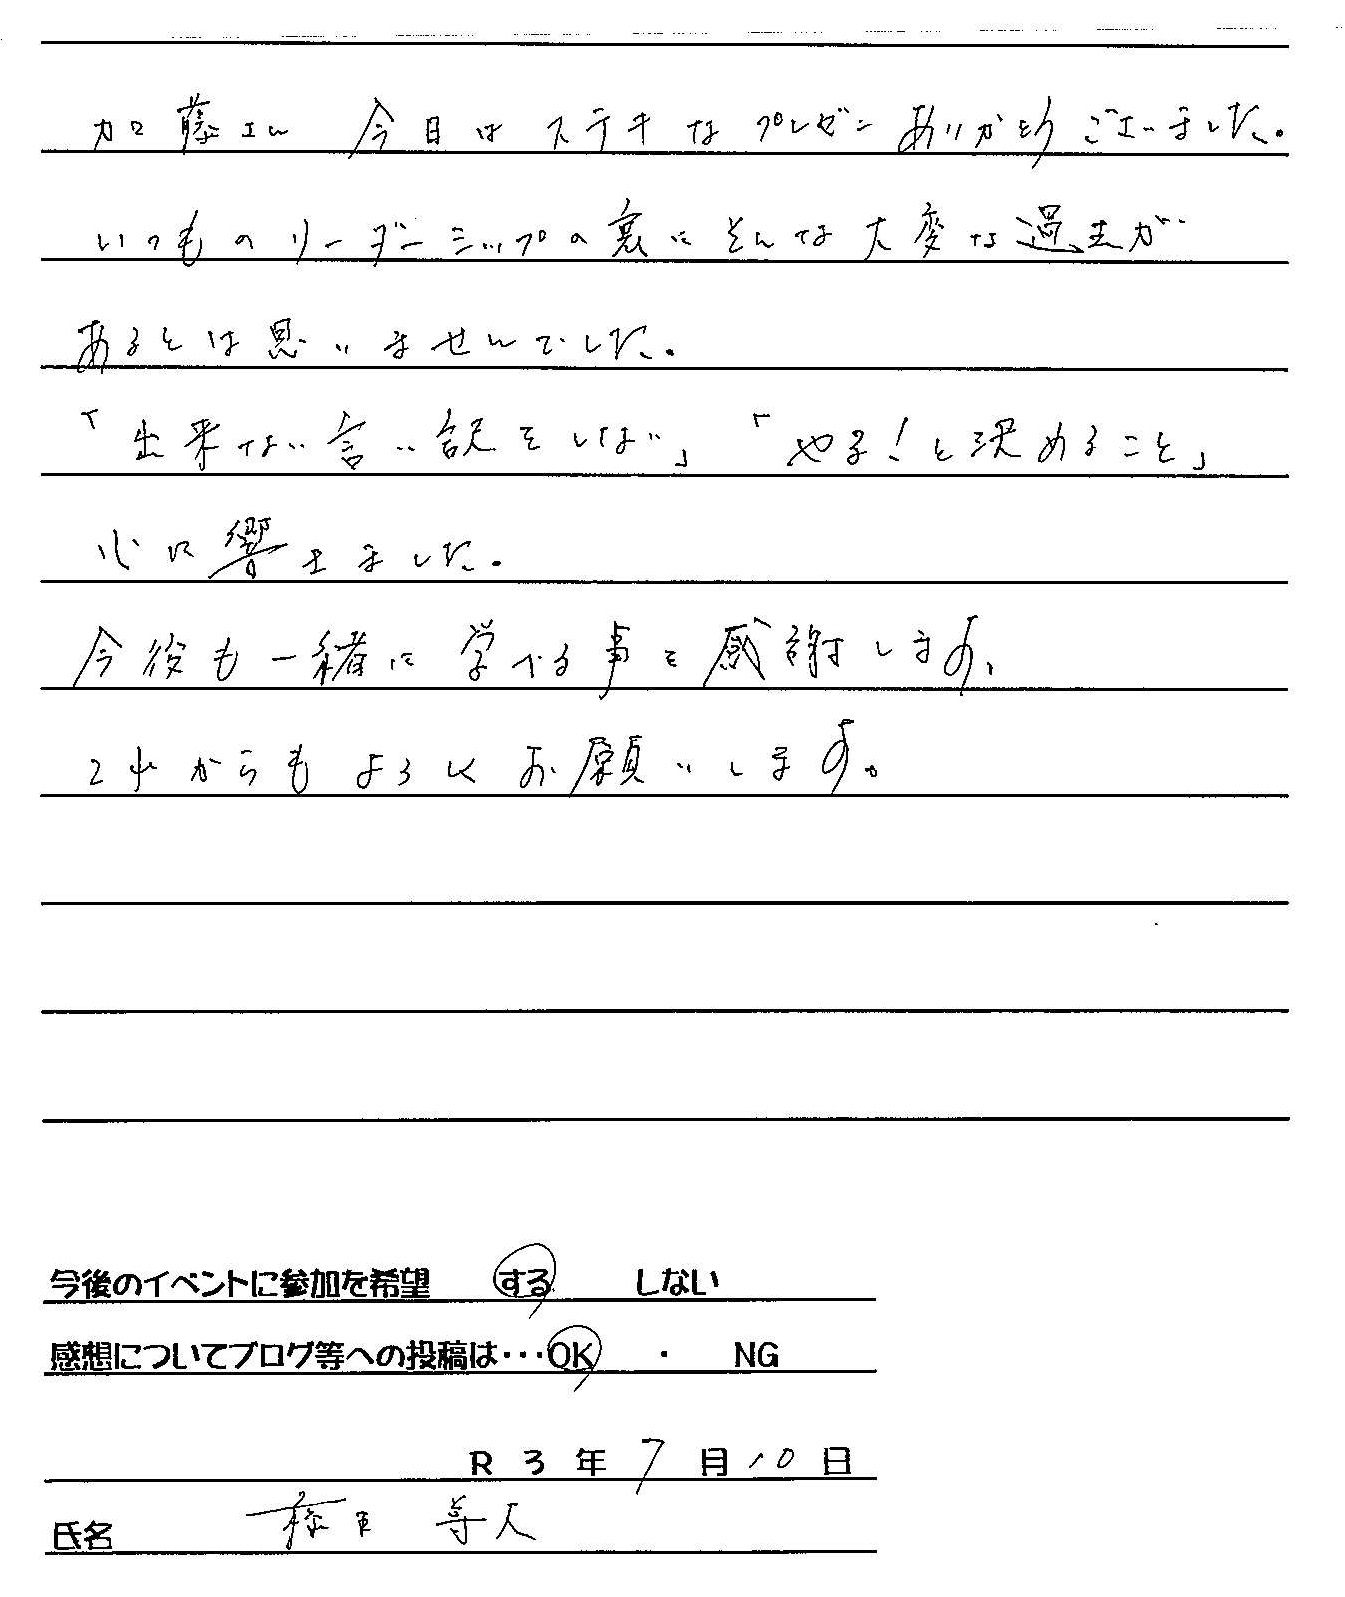 加藤さん 今日はステキなプレゼンありがとうございました。
いつものリーダーシップの裏にそんな大変な過去が
あるとは思いませんでした。
「出来ない言い訳をしない」「やる!と決めること」
心に響きました。
今後も一緒に学べる事を感謝します、
これからもよろしくお願いします。
今後のイベントに参加を希望 する しない
感想についてブログ等への投稿は・・・OK ・ NG
R 3 年 7 月 10 日
氏名 尊人